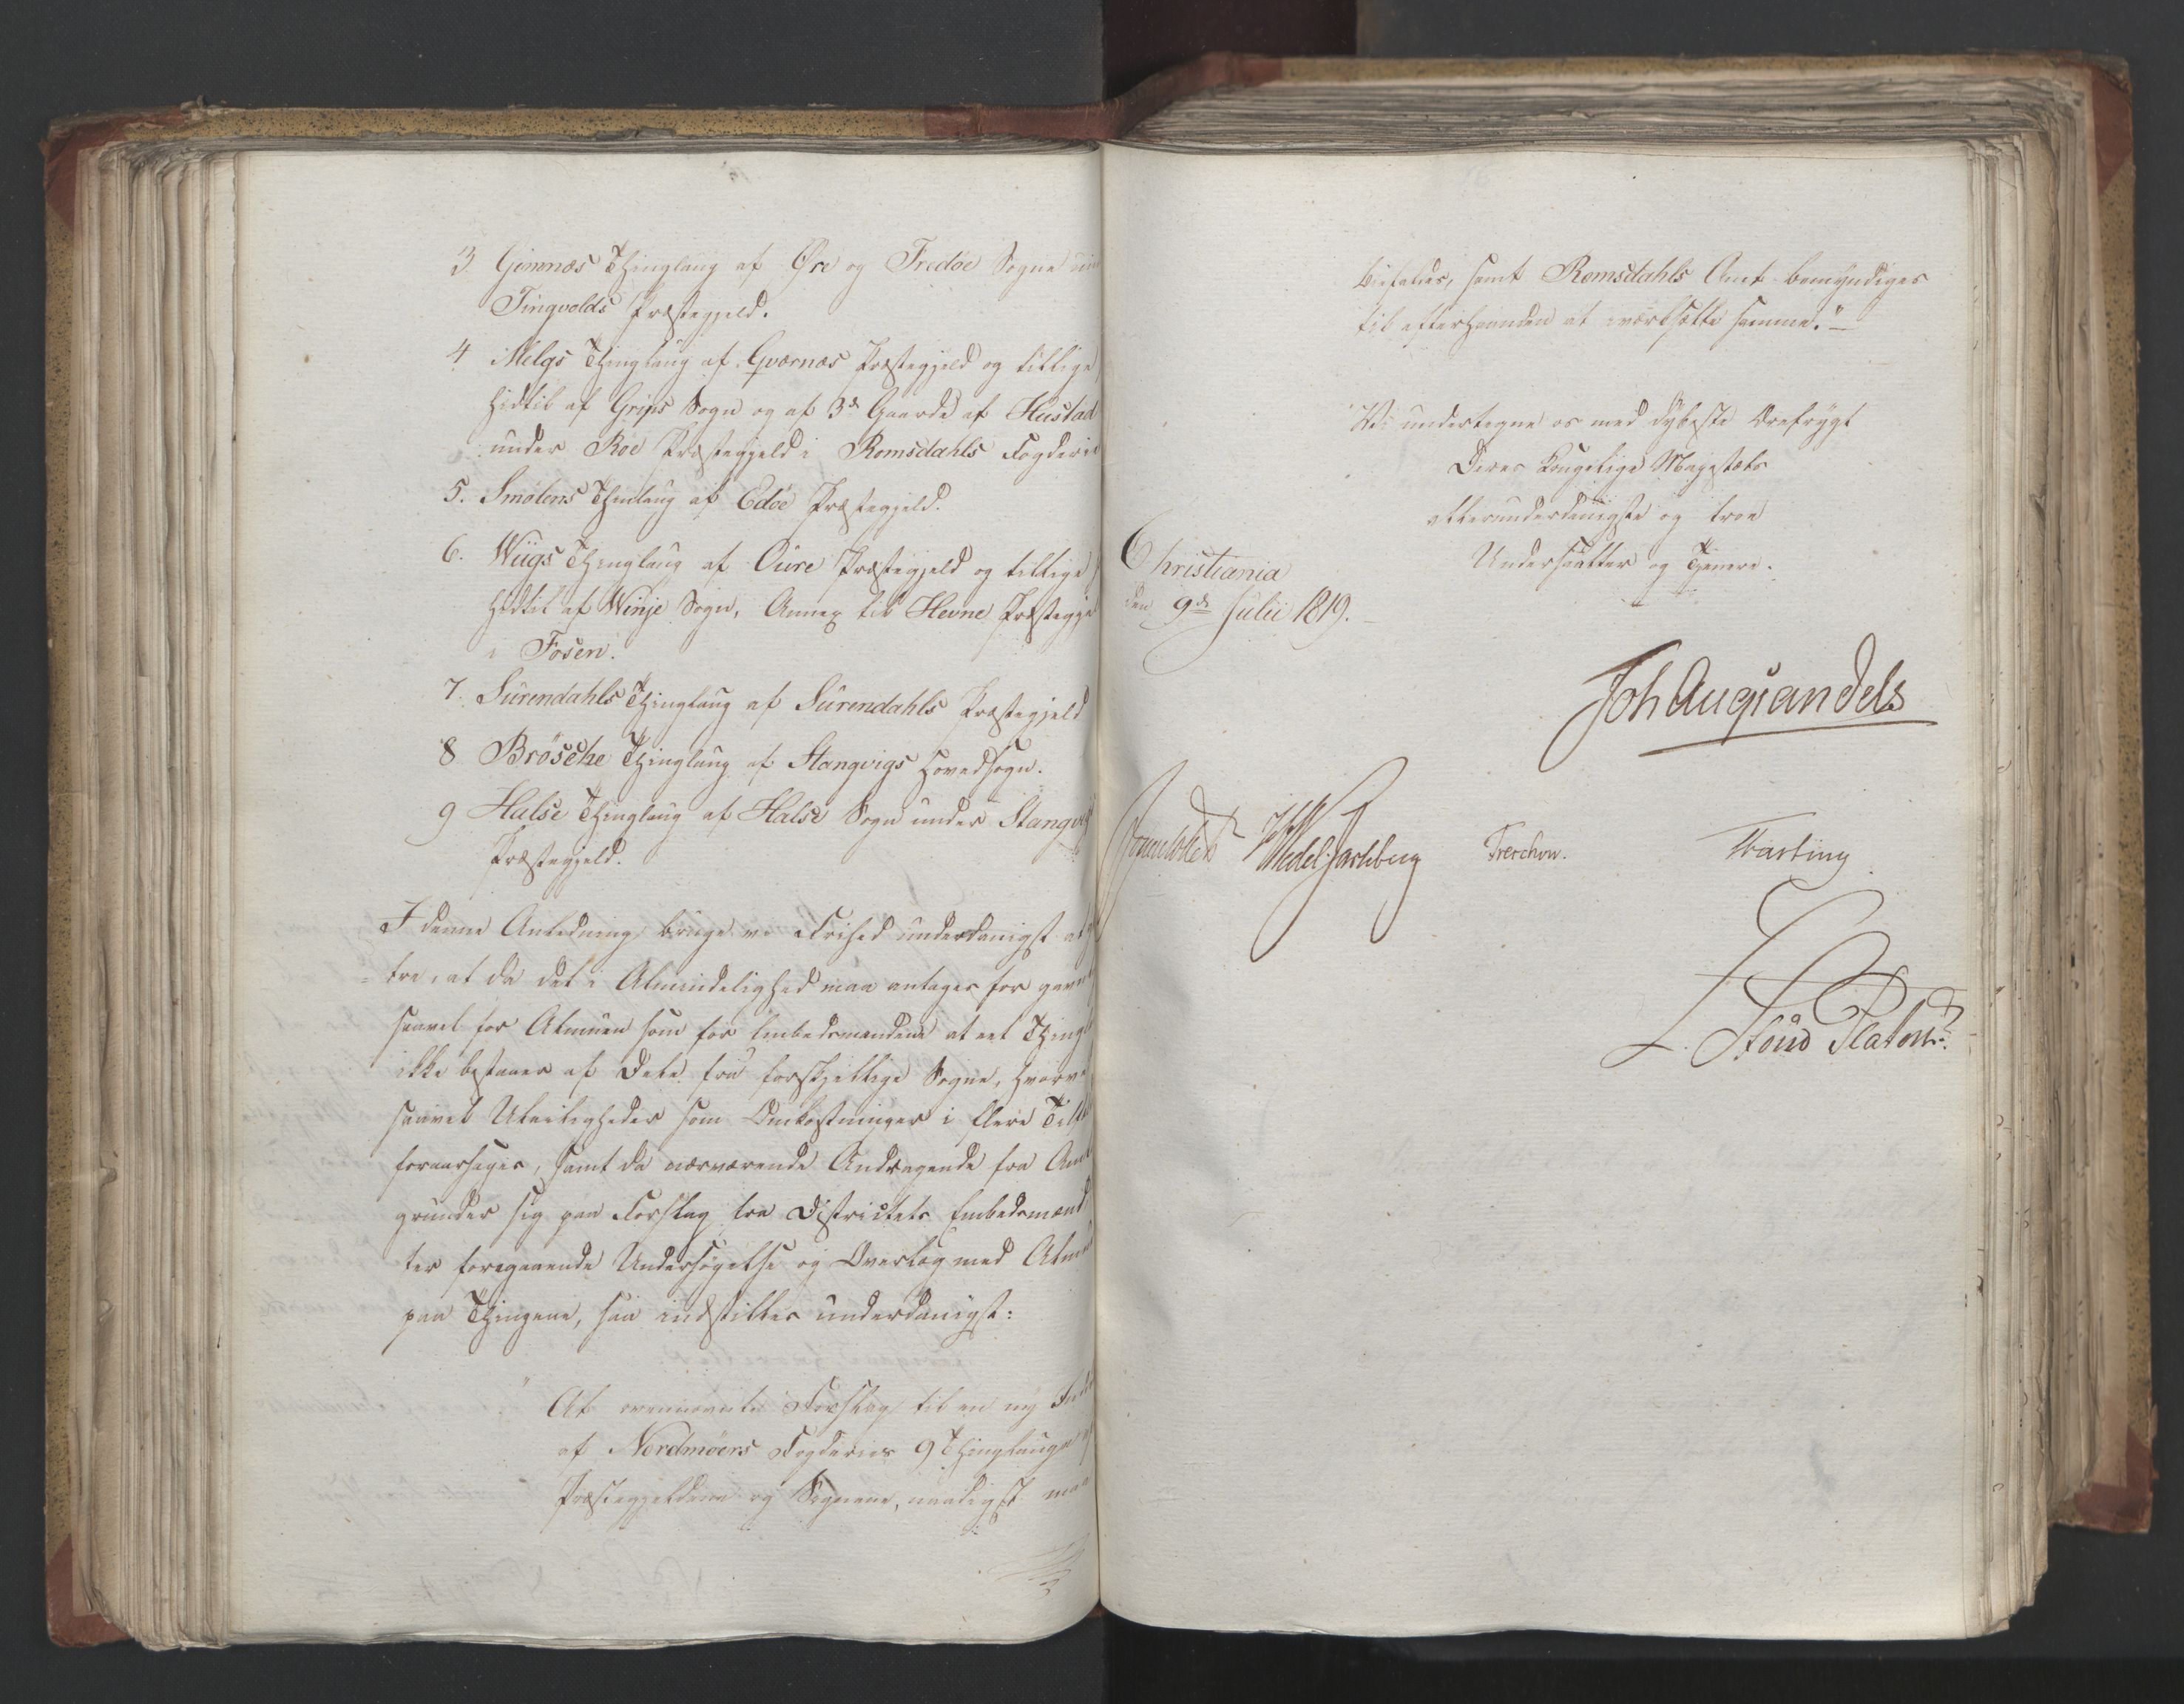 3. Gimnæs Thinglaug af Øre og Fredøe Sogne un
Tingvolds Præstegjeld.
4 Melgs Thinglaug af Qværnæs Præstegjeld og tillige
hidtil af Grips Sogn og af 3de Gaarde af Hustad
under Boe Præstegjeld i Romsdahls Fogderie
5. Smølens Thinlaug af Edøe Præstegjeld.
6. Wiigs Thinglaug af Oure Præstegjeld og tillige
hidtil af Winje Sogn, Annex til Hevne Præstegje
i Fosen.
7. Surendahls Thinglaug af Surendahls Præstegjeld
8 Brøsche Thinglaug af Stangvigs Hovedsogn.
9 Halse Thinglaug af Halse Sogn under Stangvig
Præstegjeld.
I denne Anledning bruge vi Frihed underdanigst at
tre, at da det i Almindelighed maa antages for gavn
saavel for Almuen som for Embedsmændene at eet Thingl
ikke bestaaer af Dele fra forskjellige Sogne, hvorve
saavel Uleiligheder som Omkostninger i flere Tilf
foraarsages, samt da nærværende Andragende fra Amt
grunder sig paa Forslag fra Districtets Embedsmænd
ter foregaaende Undersøgelse og Overlæg med Alm
paa Thingene, saa indstilles underdanigst:
"At ovennævnte Forslag til en ny Ind
af Nordmøers Fogderies 9 Thinglauge
Præstegjeldene og Sognene, naadigst maa
bifaldes, samt Romsdahls Amt bemyndiges
til efterhaanden at iværksætte samme."
Vi undertegne os med dybeste Ærefrygt
Deres Kongelige Majestæts
allerunderdanigste og troe
Undersaatter og Tjenere.
Christiania
den 9de Julii 1819.
Joh Aug Sandels
Sommerhielm Wedel Jarlsberg Treschow. Fasting
L. Stoud Platou